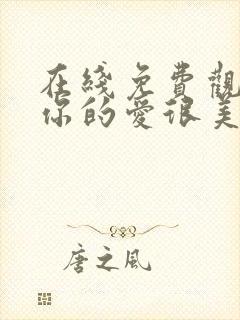 在綫免費觀
你的愛很美
唐之風